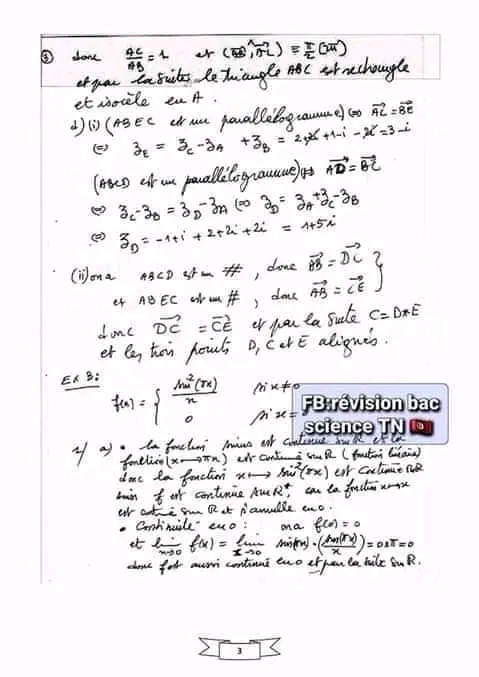 ③ donc AC/AB = 1 et (AB, AC) ≡ π/2 [2π]
et par la suite le triangle ABC est rectangle
et isocèle en A.
d) (i) (ABEC est un parallélogramme) ⇔ AC = BE
⇔ z_E = z_C - z_A + z_B = 3-i
(ABCD est un parallélogramme) ⇔ AD = BC
⇔ z_C - z_B = z_D - z_A ⇔ z_D = z_A + z_C - z_B
⇔ z_D = -1+i + 2+2i + 2i = 1+5i
(ii) on a ABCD est un #, donc AB = DC
et ABEC est un #, donc AB = CE
donc DC = CE et par la suite C = D*E
et les trois points D, C et E alignés.
Ex 3:
f(x) = { sin²(πx)/x si x≠0
0 si x =
FB:révision bac
science TN 🇹🇳
1/ a) • la fonction sinus est continue sur R et la
fonction (x→πx) est continue sur R (fonction linéaire)
donc la fonction x→ sin²(πx) est continue sur R
f est continue sur R*, car la fonction x→x
est continue sur R et s'annule en 0.
• Continuité en 0 : on a f(0) = 0
et lim x→0 f(x) = lim x→0 sin(πx) · (sin(πx)/x) = 0×π = 0
donc f est aussi continue en 0 et par la suite sur R.
3